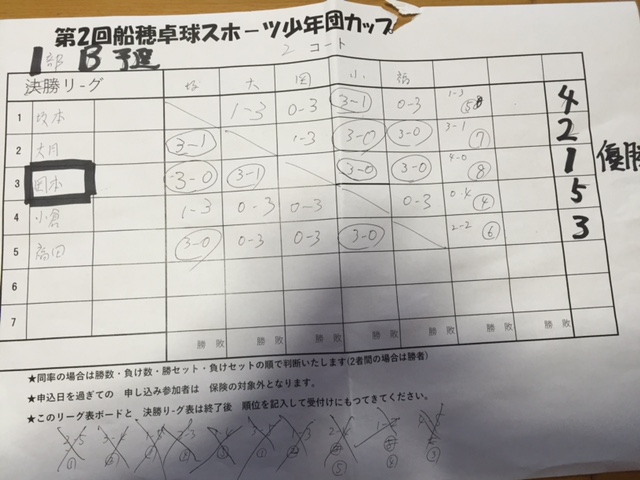 第2回船穂卓球スポーツ少年団カップ
1部 B予選 2 コート
決勝リーグ 坂 大 岡 小 福
1 坂本 1-3 0-3 3-1 0-3 1-3 ⑤ 4
2 大月 3-1 1-3 3-0 3-0 3-1 ⑦ 2
3 岡本 3-0 3-1 3-0 3-0 4-0 ⑧ 1 優勝
4 小倉 1-3 0-3 0-3 0-3 0-4 ④ 5
5 3-0 0-3 0-3 3-0 2-2 ⑥ 3
6
7
勝 敗 勝 敗 勝 敗 勝 敗 勝 敗 勝 敗 勝 敗
★同率の場合は勝数・負け数・勝セット・負けセットの順で判断いたします(2者間の場合は勝者)
★申込日を過ぎての 申し込み参加者は 保険の対象外となります。
★このリーグ表ボードと 決勝リーグ表は終了後 順位を記入して受付けにもってきてください。